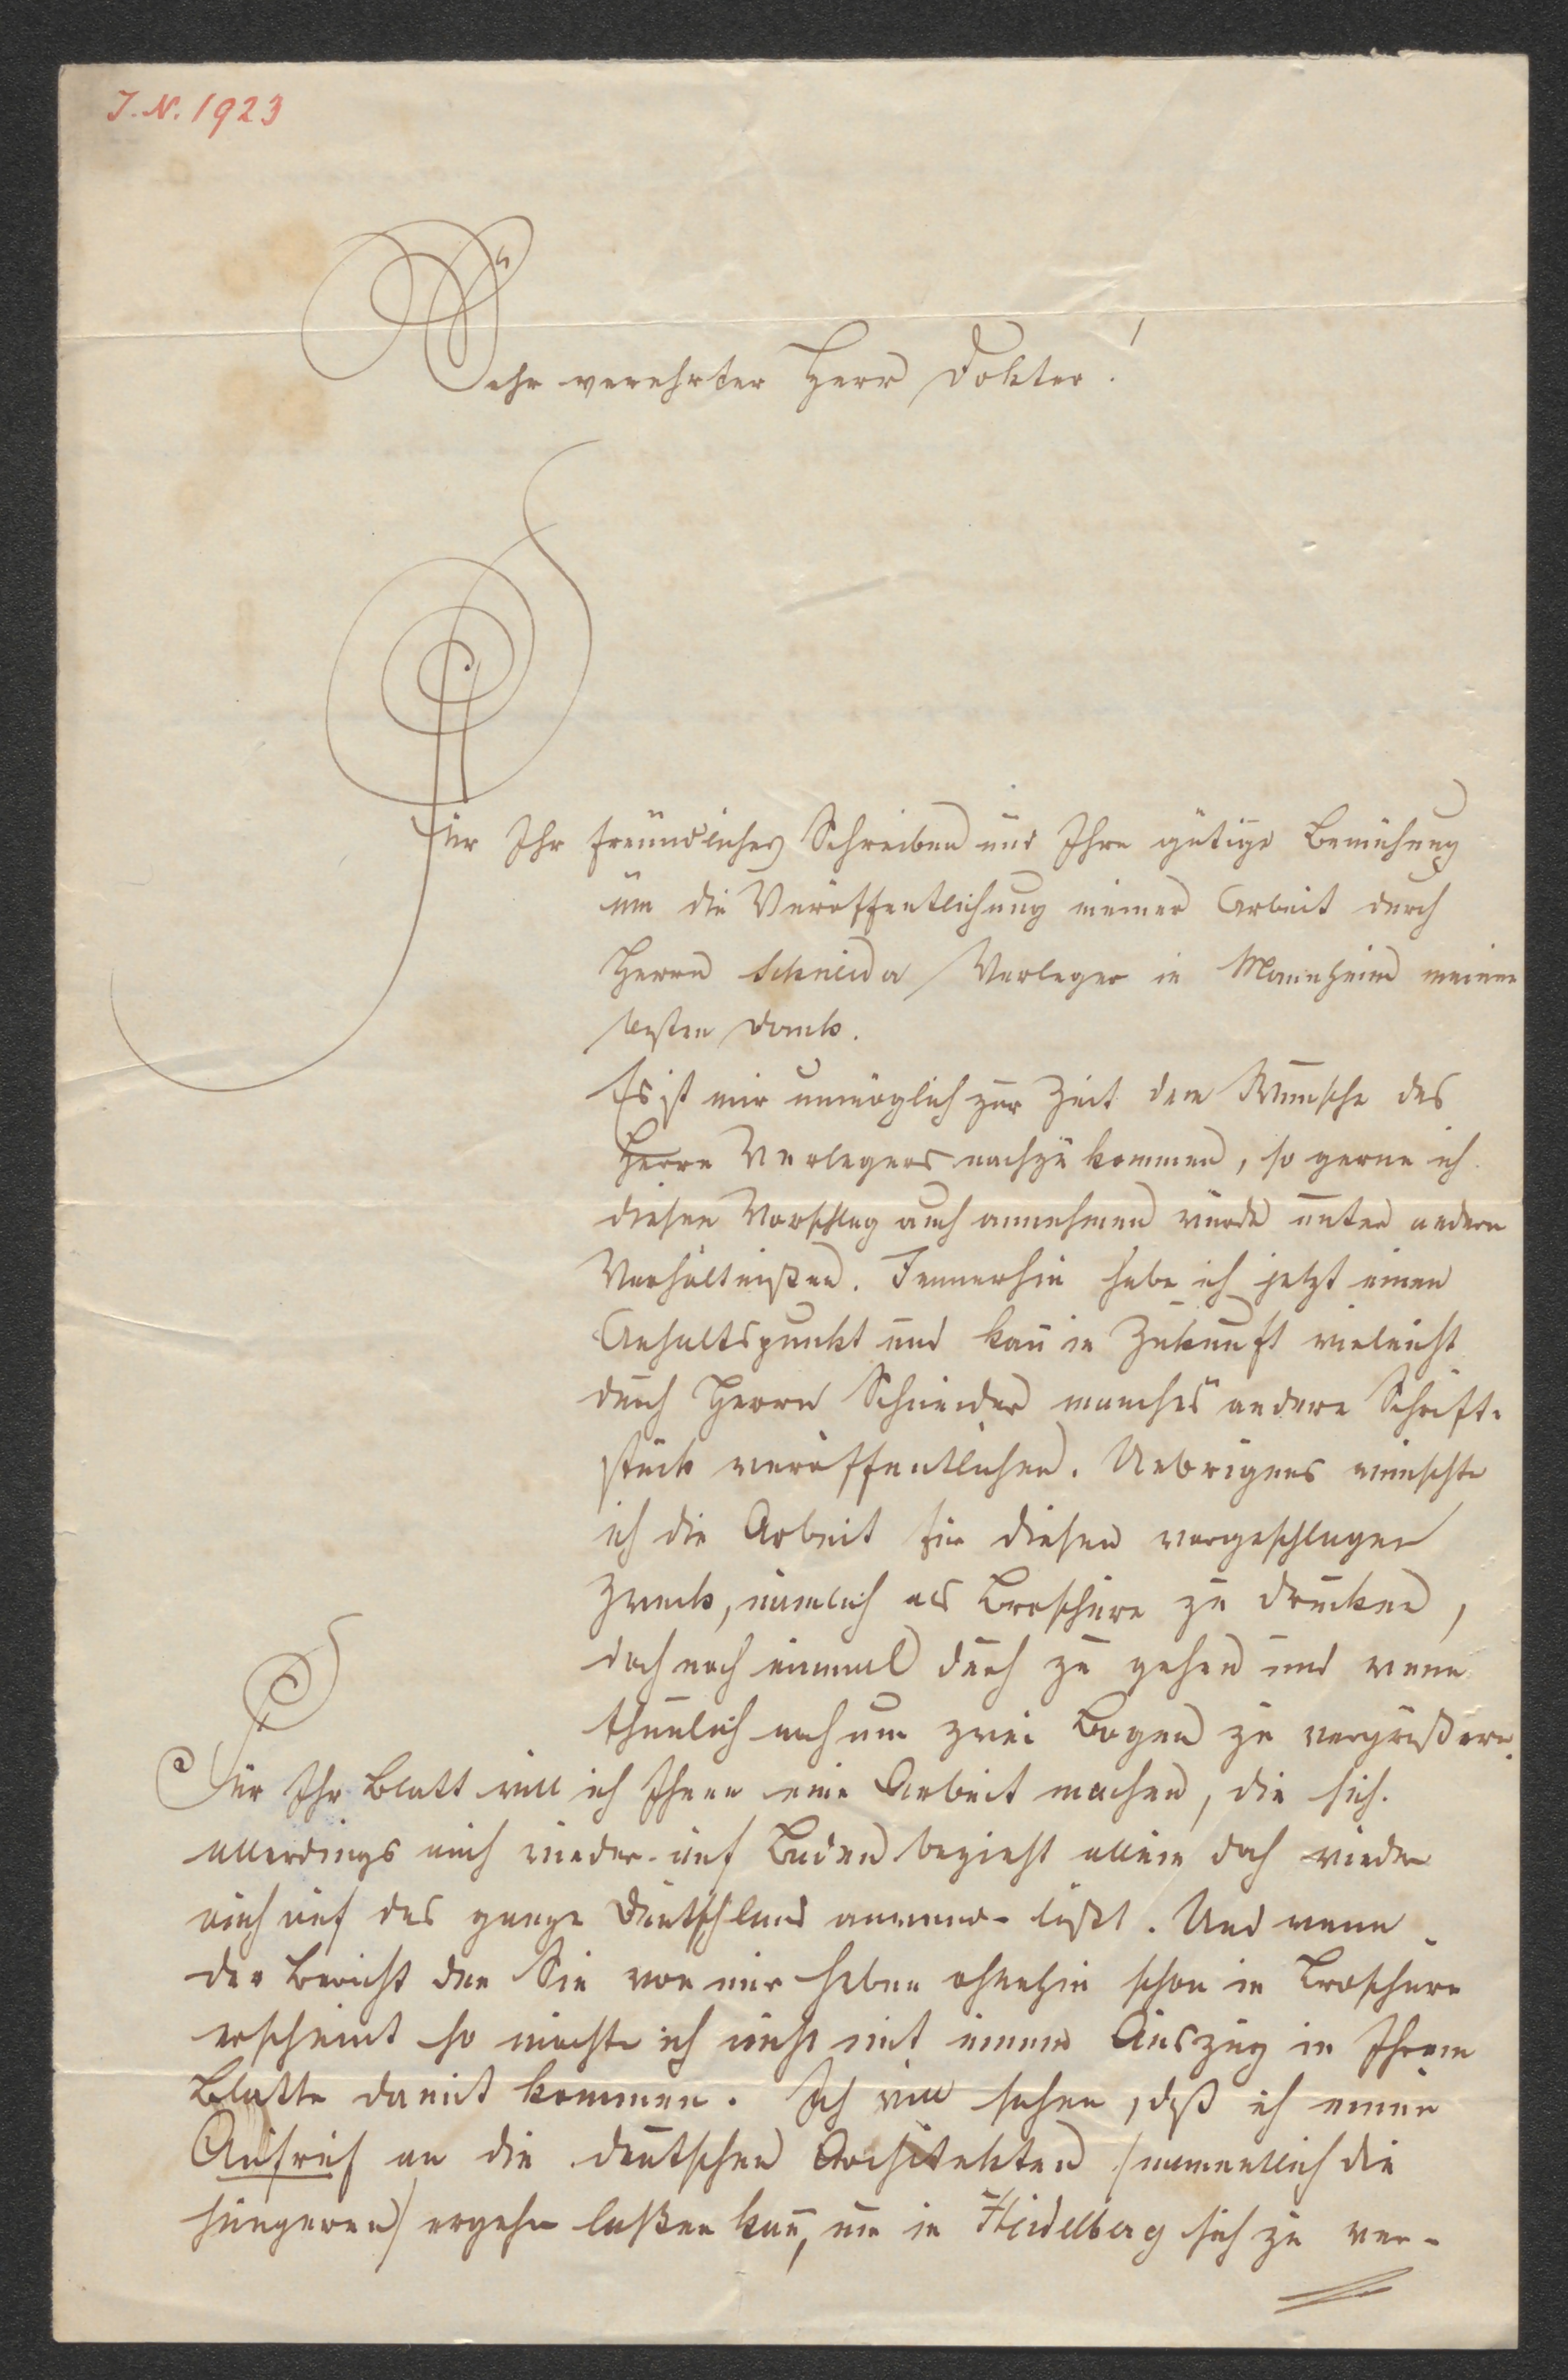 J. N. 1923
Sehr verehrter Herr Dokter!
Für Ihr freundliches Schreiben und Ihre gütige Bemühung
um die Veröffentlichung meiner Arbeit durch
Herrn Schneider Verleger in Mannheim meinen
besten Dank.
Es ist mir unmöglich zur Zeit dem Wunsche des
Herrn Verlegers nachzukommen, so gerne ich
diesen Vorschlag auch annehmen würde unter andern
Verhältnißen. Immerhin habe ich jetzt einen
Anhaltspunkt und kan̄ in Zukunft vieleicht
durch Herrn Schneider manches andere Schrift-
stück veröffentlichen. Uebrigens wünschte
ich die Arbeit für diesen vorgeschlagen
Zweck, nämlich als Broschüre zu drucken,
doch noch einmal durch zu gehen und wenn
thunlich noch um zwei Bogen zu vergrößern.
Für Ihr Blatt will ich Ihnen eine Arbeit machen, die sich
allerdings auch wieder auf Baden bezieht allein doch wieder
auch auf das ganze Deutschland anwend- läßt. Und wenn
der Bericht den Sie von mir haben ohnehin schon in Broschüre
erscheint so möchte ich nicht mit einem Auszug in Ihrem
Blatte damit kommen. Ich will sehen, daß ich einen
Aufruf an die deutschen Architekten (namentlich die
jüngeren) ergehen laßen kan̄, um in Heidelberg sich zu ver-